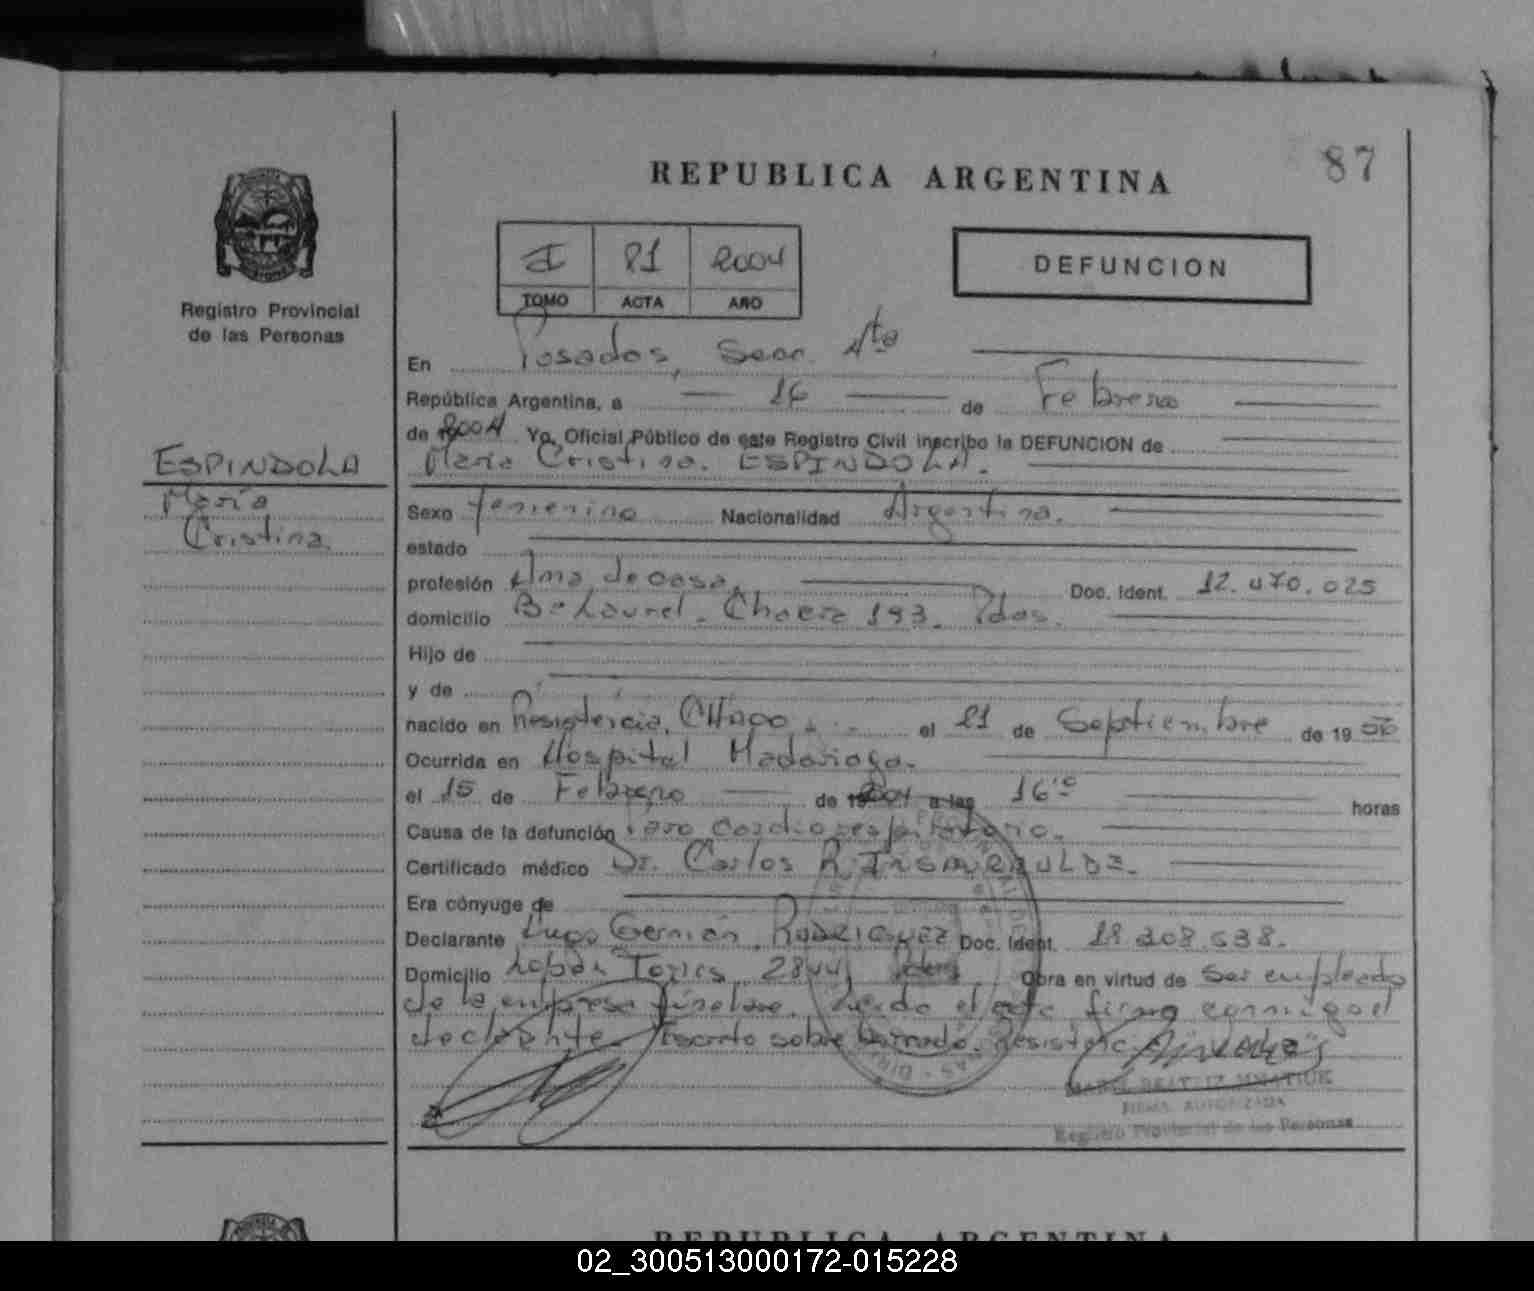 87
REPUBLICA ARGENTINA
I 81 2004
TOMO ACTA AÑO
DEFUNCION
Registro Provincial
de las Personas
En Posadas, Secc. 4ta
República Argentina, a 16 de Febrero
de 2004 Yo, Oficial Público de este Registro Civil inscribo la DEFUNCION de
María Cristina ESPINDOLA.
ESPINDOLA
María
Cristina
Sexo femenino Nacionalidad Argentina.
estado
profesión Ama de casa, Doc. Ident. 12.470.025
domicilio Bº Laurel. Chacra 193. Pdas.
Hijo de
y de
nacido en Resistencia, CHaco el 21 de Septiembre de 19 56
Ocurrida en Hospital Madariaga.
el 15 de Febrero de 2004 a las 16 horas
Causa de la defunción Paro Cardiorespiratorio.
Certificado médico Dr. Carlos R. INSAURRALDE.
Era cónyuge de
Declarante Hugo Germán RODRIGUEZ Doc. Ident. 18.208.538.
Domicilio Torres 2844 Obra en virtud de Ser empleado
de la empresa fúnebre. Leído el acta firma conmigo el
declarante. Escrito sobre borrado. Resistencia
BEATRIZ
FIRMA AUTORIZADA
Registro Provincial de las Personas
REPUBLICA ARGENTINA
02_300513000172-015228